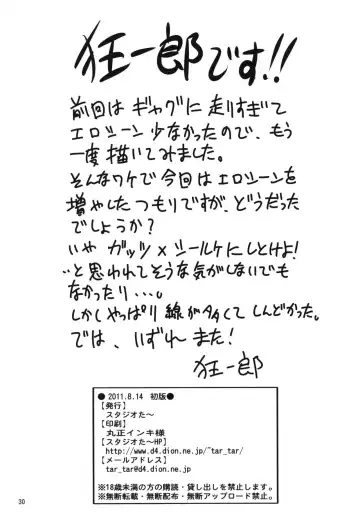 狂一郎です!!
前回は ギャグに 走りすぎて
エロシーン 少なかったので、もう
一度 描いてみました。
そんなワケで 今回は エロシーンを
増やした つもりですが、どうだった
でしょうか?
いや ガッツ×シールケにしとけよ!
‥と思われてそうな気がしないでも
なかったり…。
しかし やっぱり 線が多くて しんどかった。
では、いずれ また!
狂一郎
●2011.8.14 初版●
【発行】
スタジオた〜
【印刷】
丸正インキ様
【スタジオた〜HP】
http://www.d4.dion.ne.jp/~tar_tar/
【メールアドレス】
tar_tar@d4.dion.ne.jp
※18歳未満の方の購読・貸し出しを禁止します。
※無断転載・無断配布・無断アップロード禁止。
30